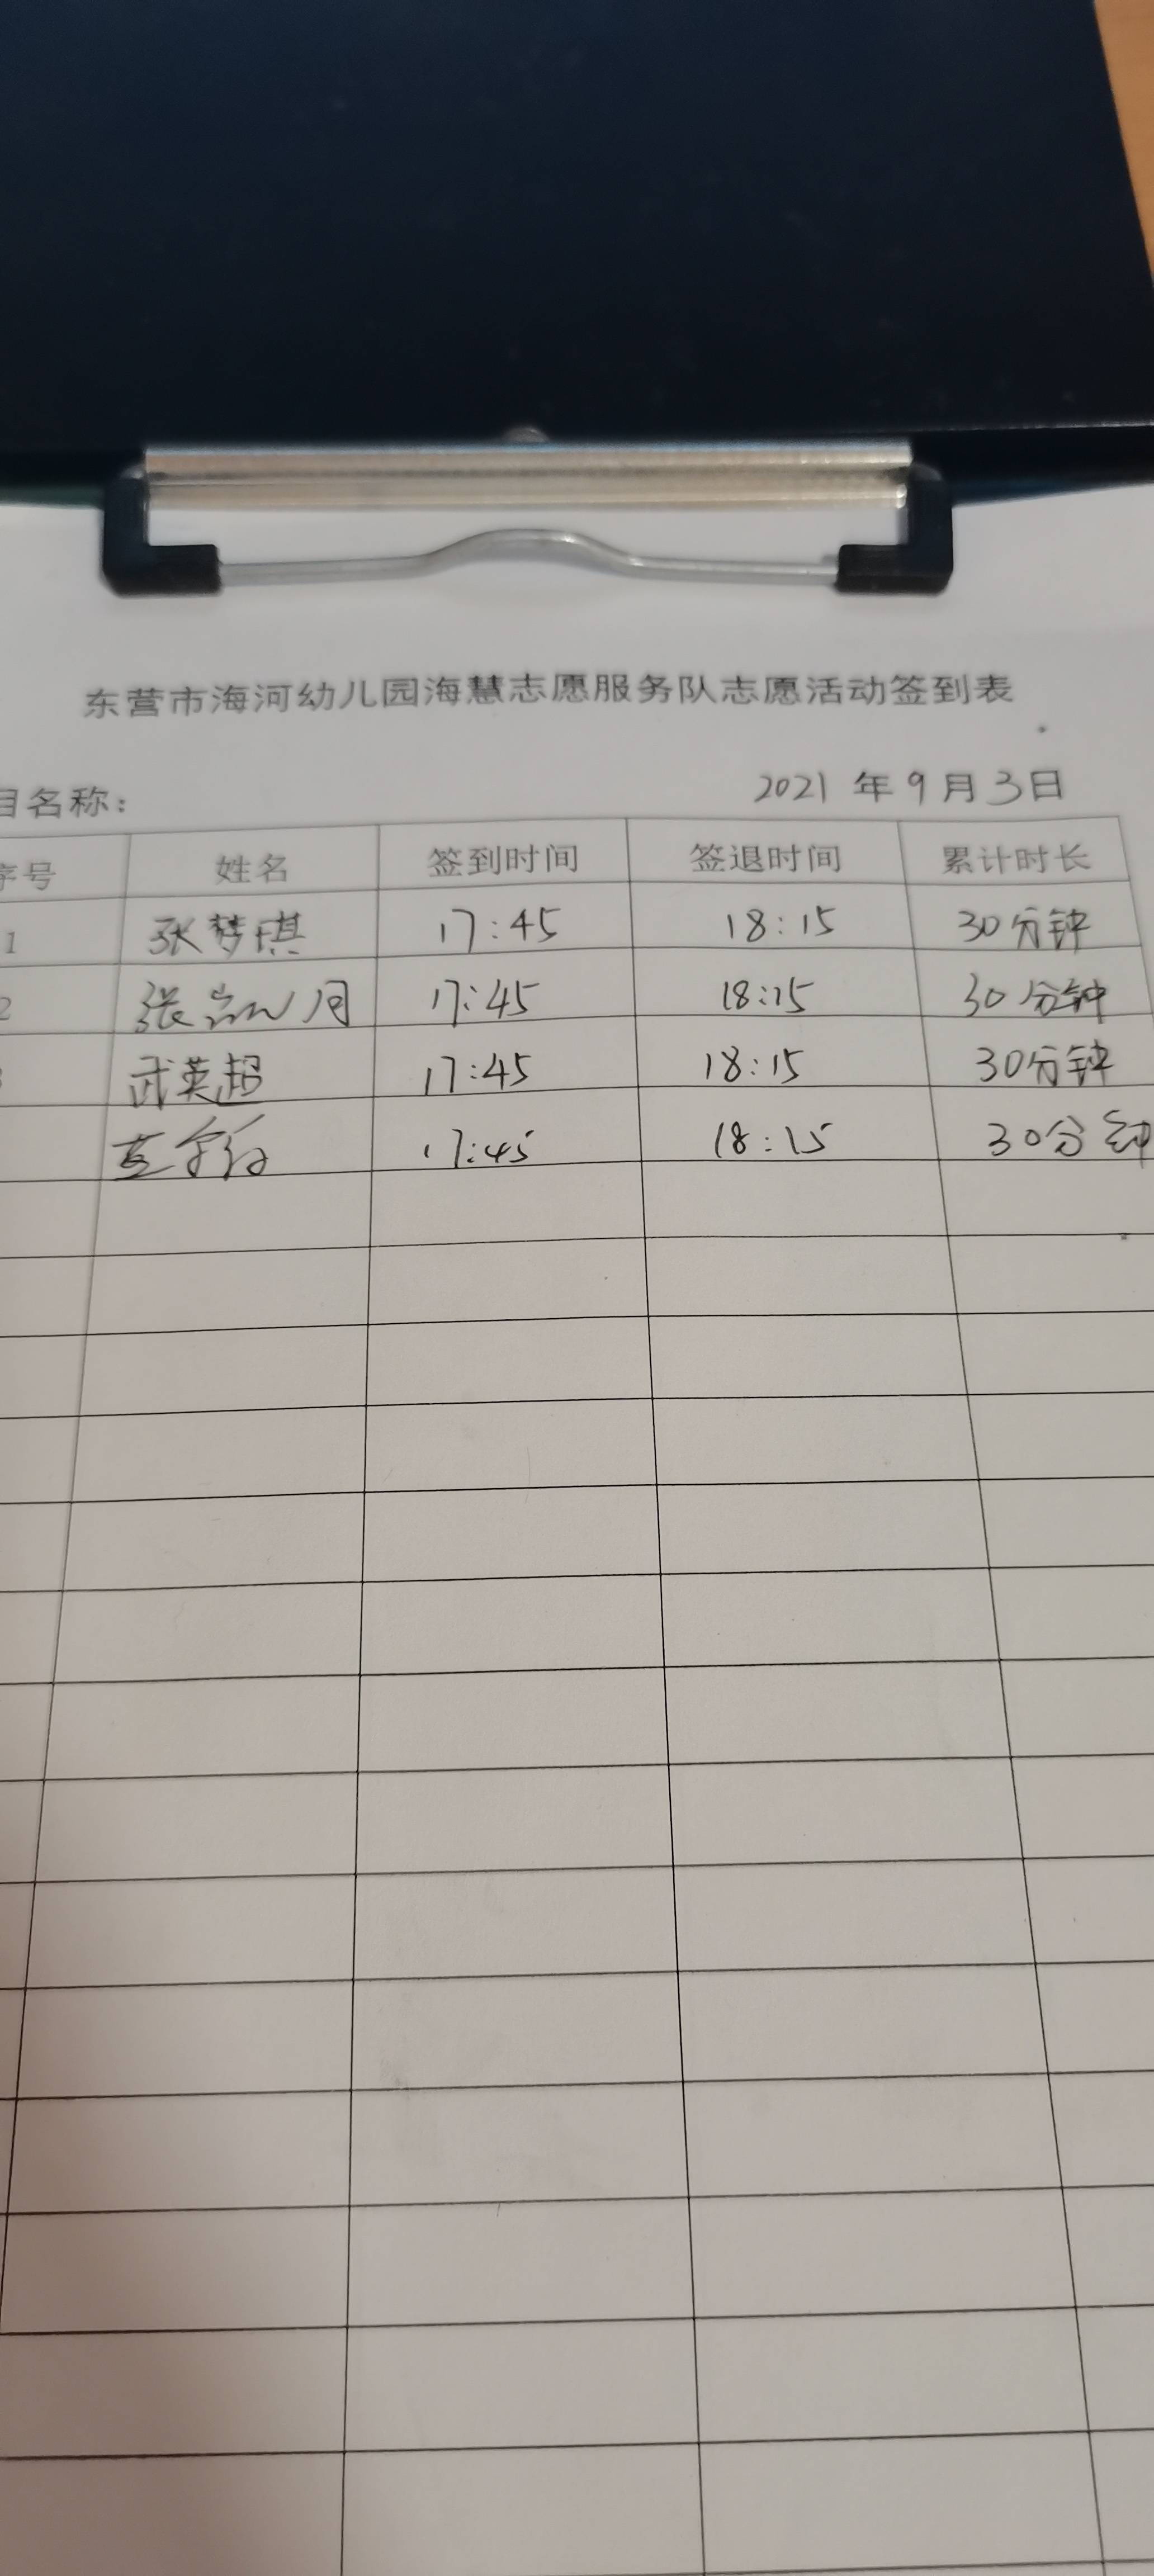 东营市海河幼儿园海慧志愿服务队志愿活动签到表
目名称：
2021 年 9 月 3 日
序号 姓名 签到时间 签退时间 累计时长
1 张梦琪 17:45 18:15 30分钟
2 张 17:45 18:15 30分钟
武英超 17:45 18:15 30分钟
17:45 18:15 30分钟